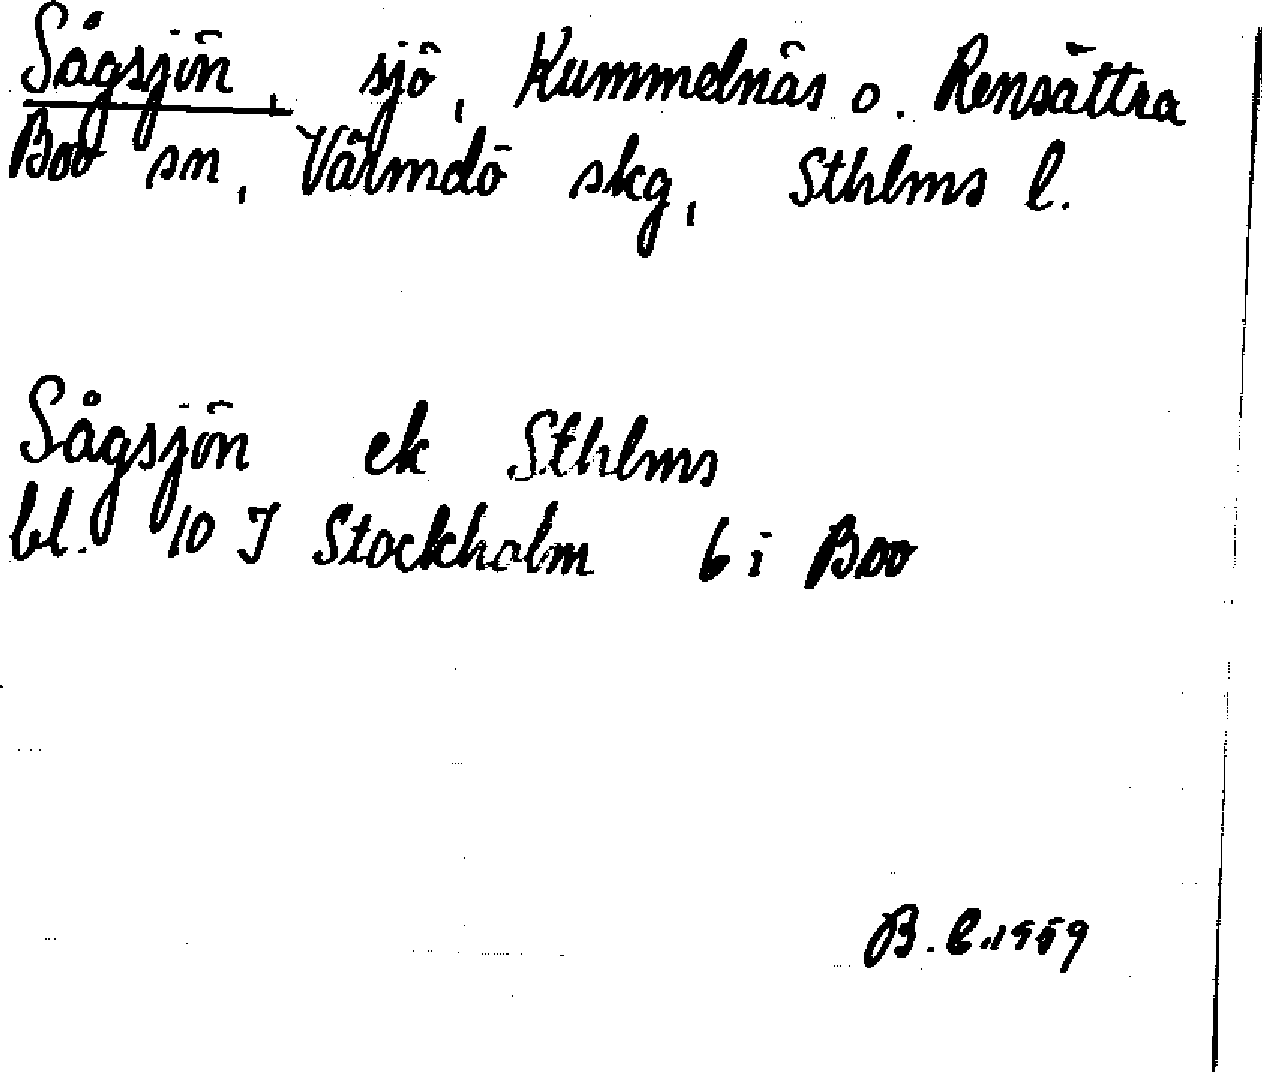 Sågsjön, sjö, Kummelnäs o. Rensättra
Boo sn, Värmdö skg, Sthlms l.
Sågsjön ek Sthlms
bl. 10 J Stockholm 6 i Boo
B. 1959